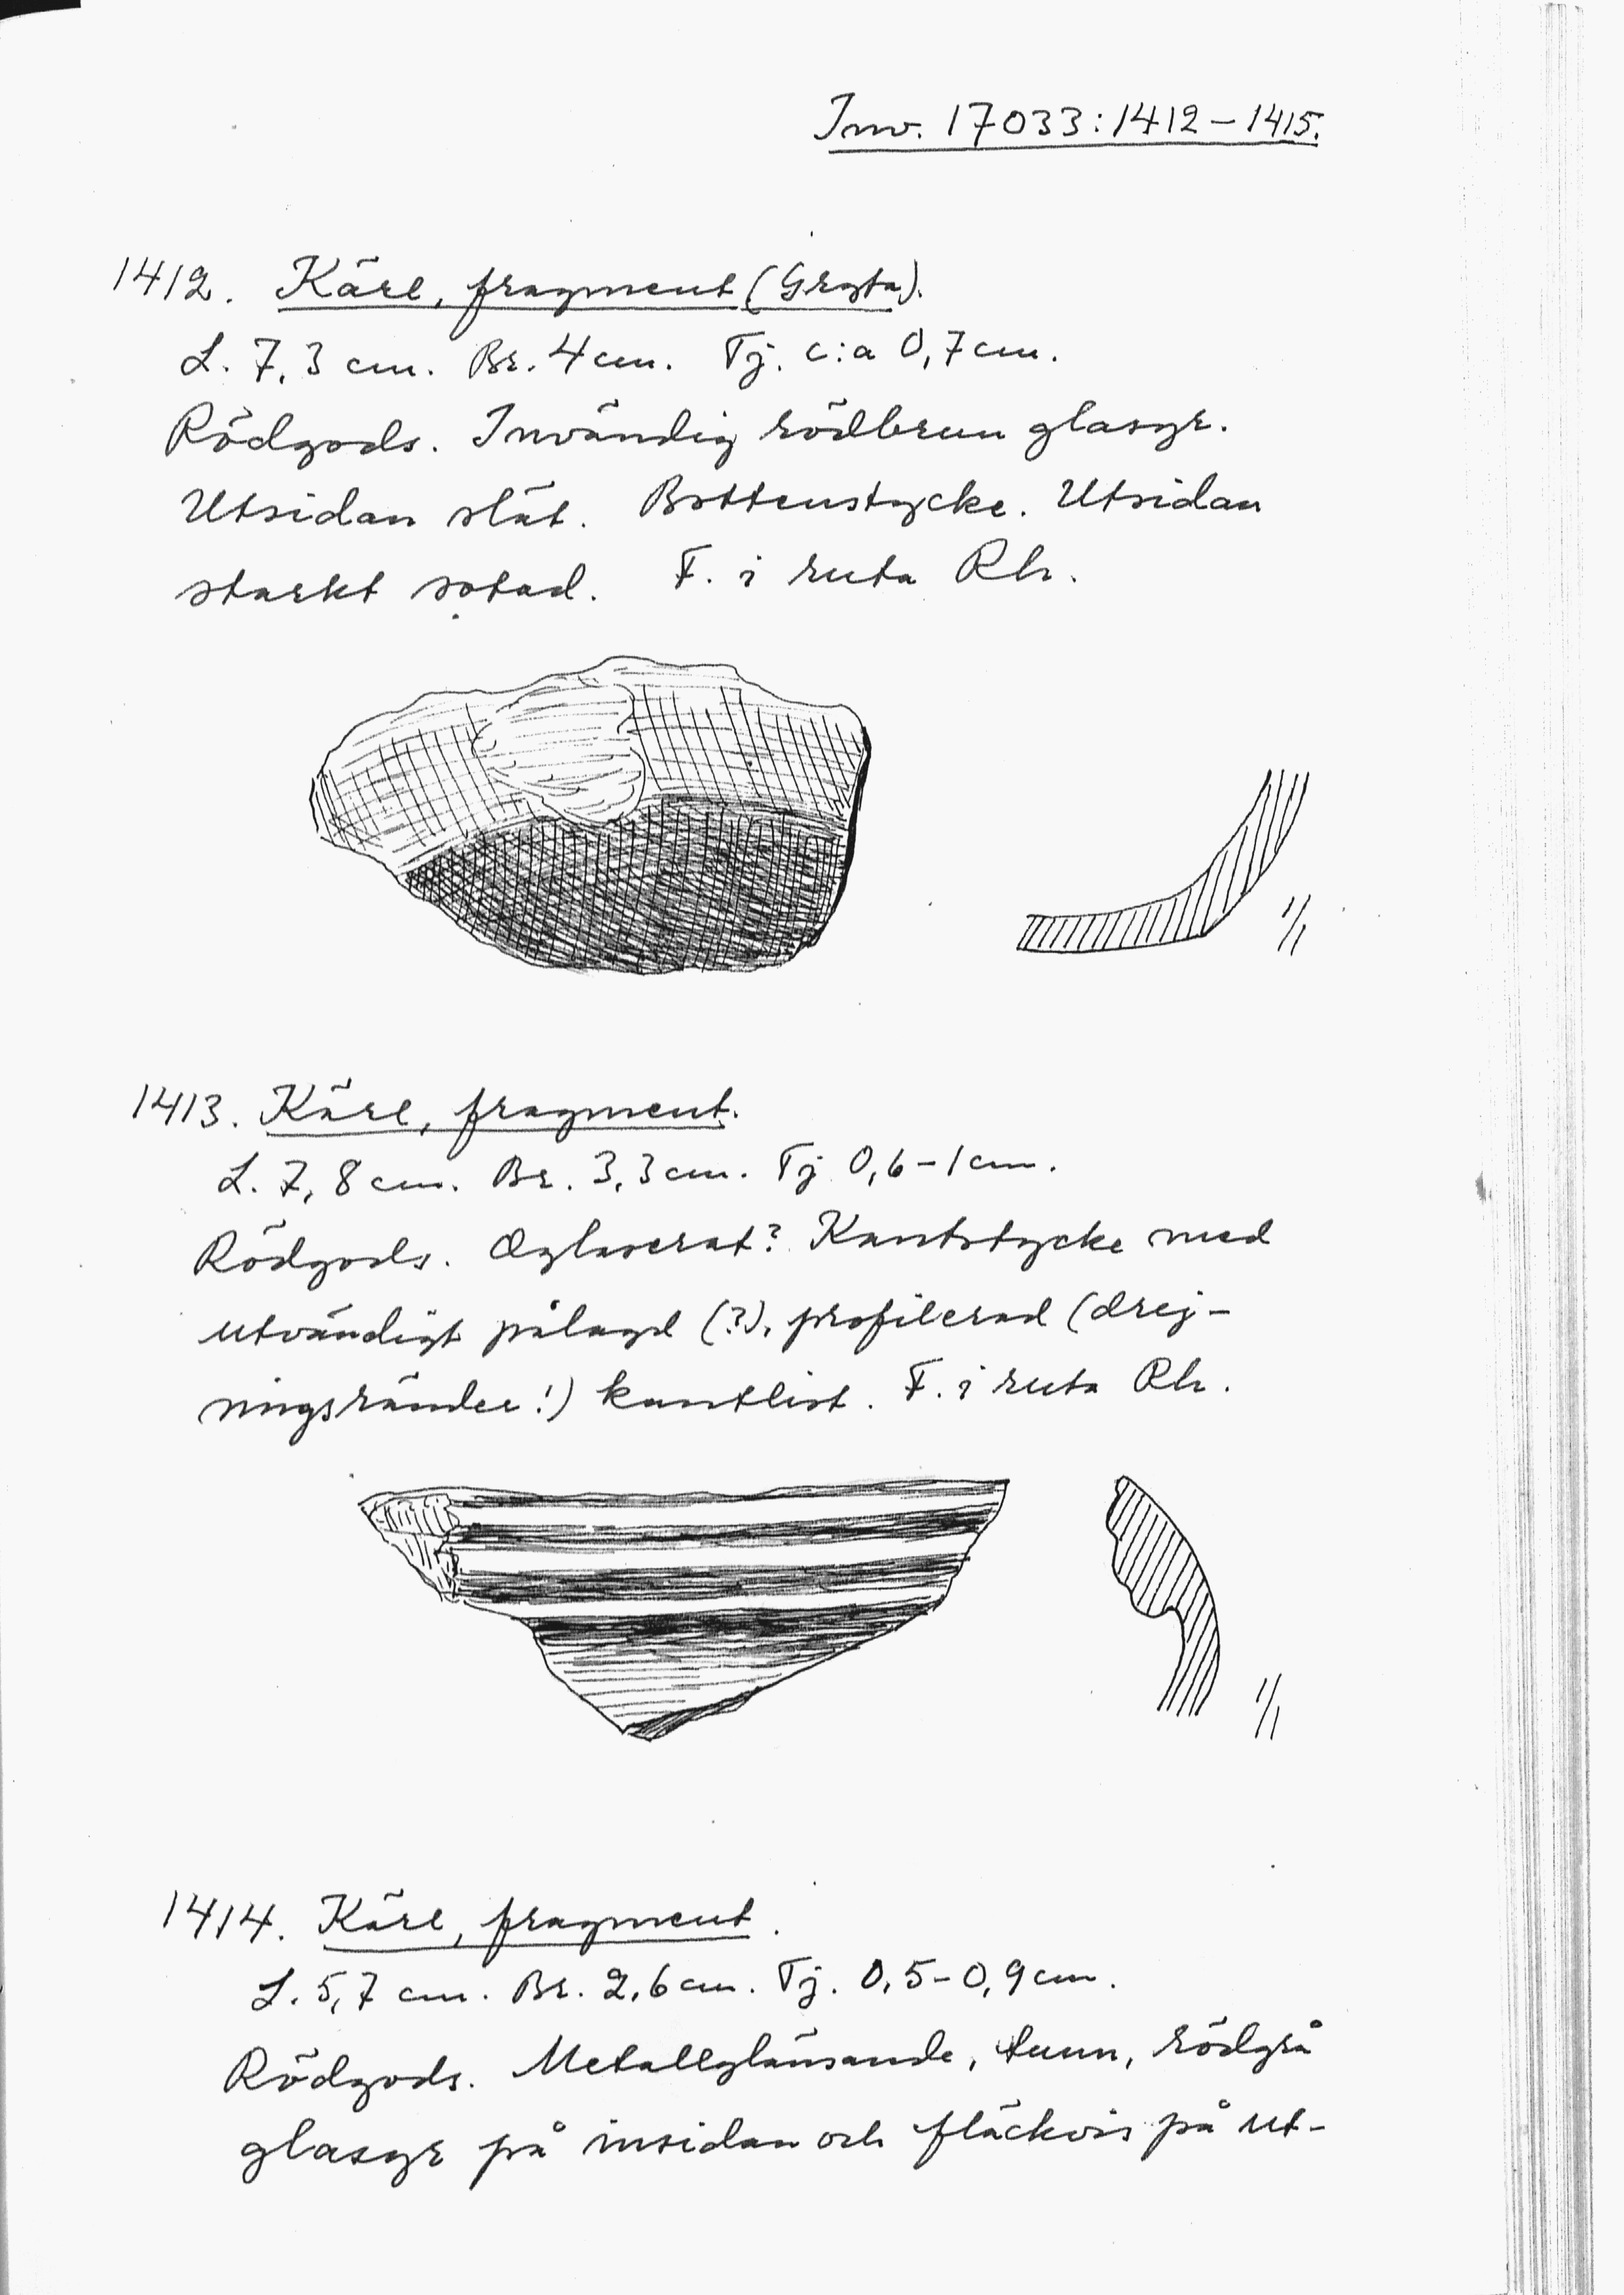 Inv. 17033:1412–1415.
1412. Kärl, fragment (Gryta).
L. 7,3 cm. Br. 4 cm. Tj. c:a 0,7 cm.
Rödgods. Invändig rödbrun glasyr.
Utsidan slät. Bottenstycke. Utsidan
starkt sotad. F. i ruta Rh.
1/1
1413. Kärl, fragment.
L. 7,8 cm. Br. 3,3 cm. Tj 0,6–1 cm.
Rödgods. Oglaserat? Kantstycke med
utvändigt pålagd (?), profilerad (drej-
ningsränder!) kantlist. F. i ruta Rh.
1/1
1414. Kärl, fragment.
L. 5,7 cm. Br. 2,6 cm. Tj. 0,5–0,9 cm.
Rödgods. Metallglänsande, tunn, rödgrå
glasyr på insidan och fläckvis på ut-